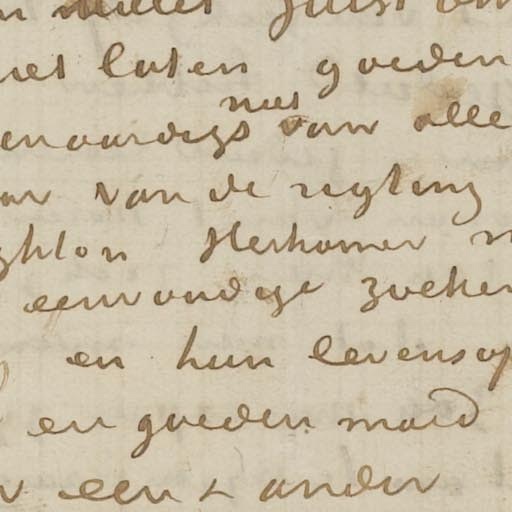 Millet juist om
niet laten goeden
eenvoudigs met van alle
van de regtering
ghton Herkomer
eenvoudige zoeken
en hun levensop
en goeden moed
een & ander